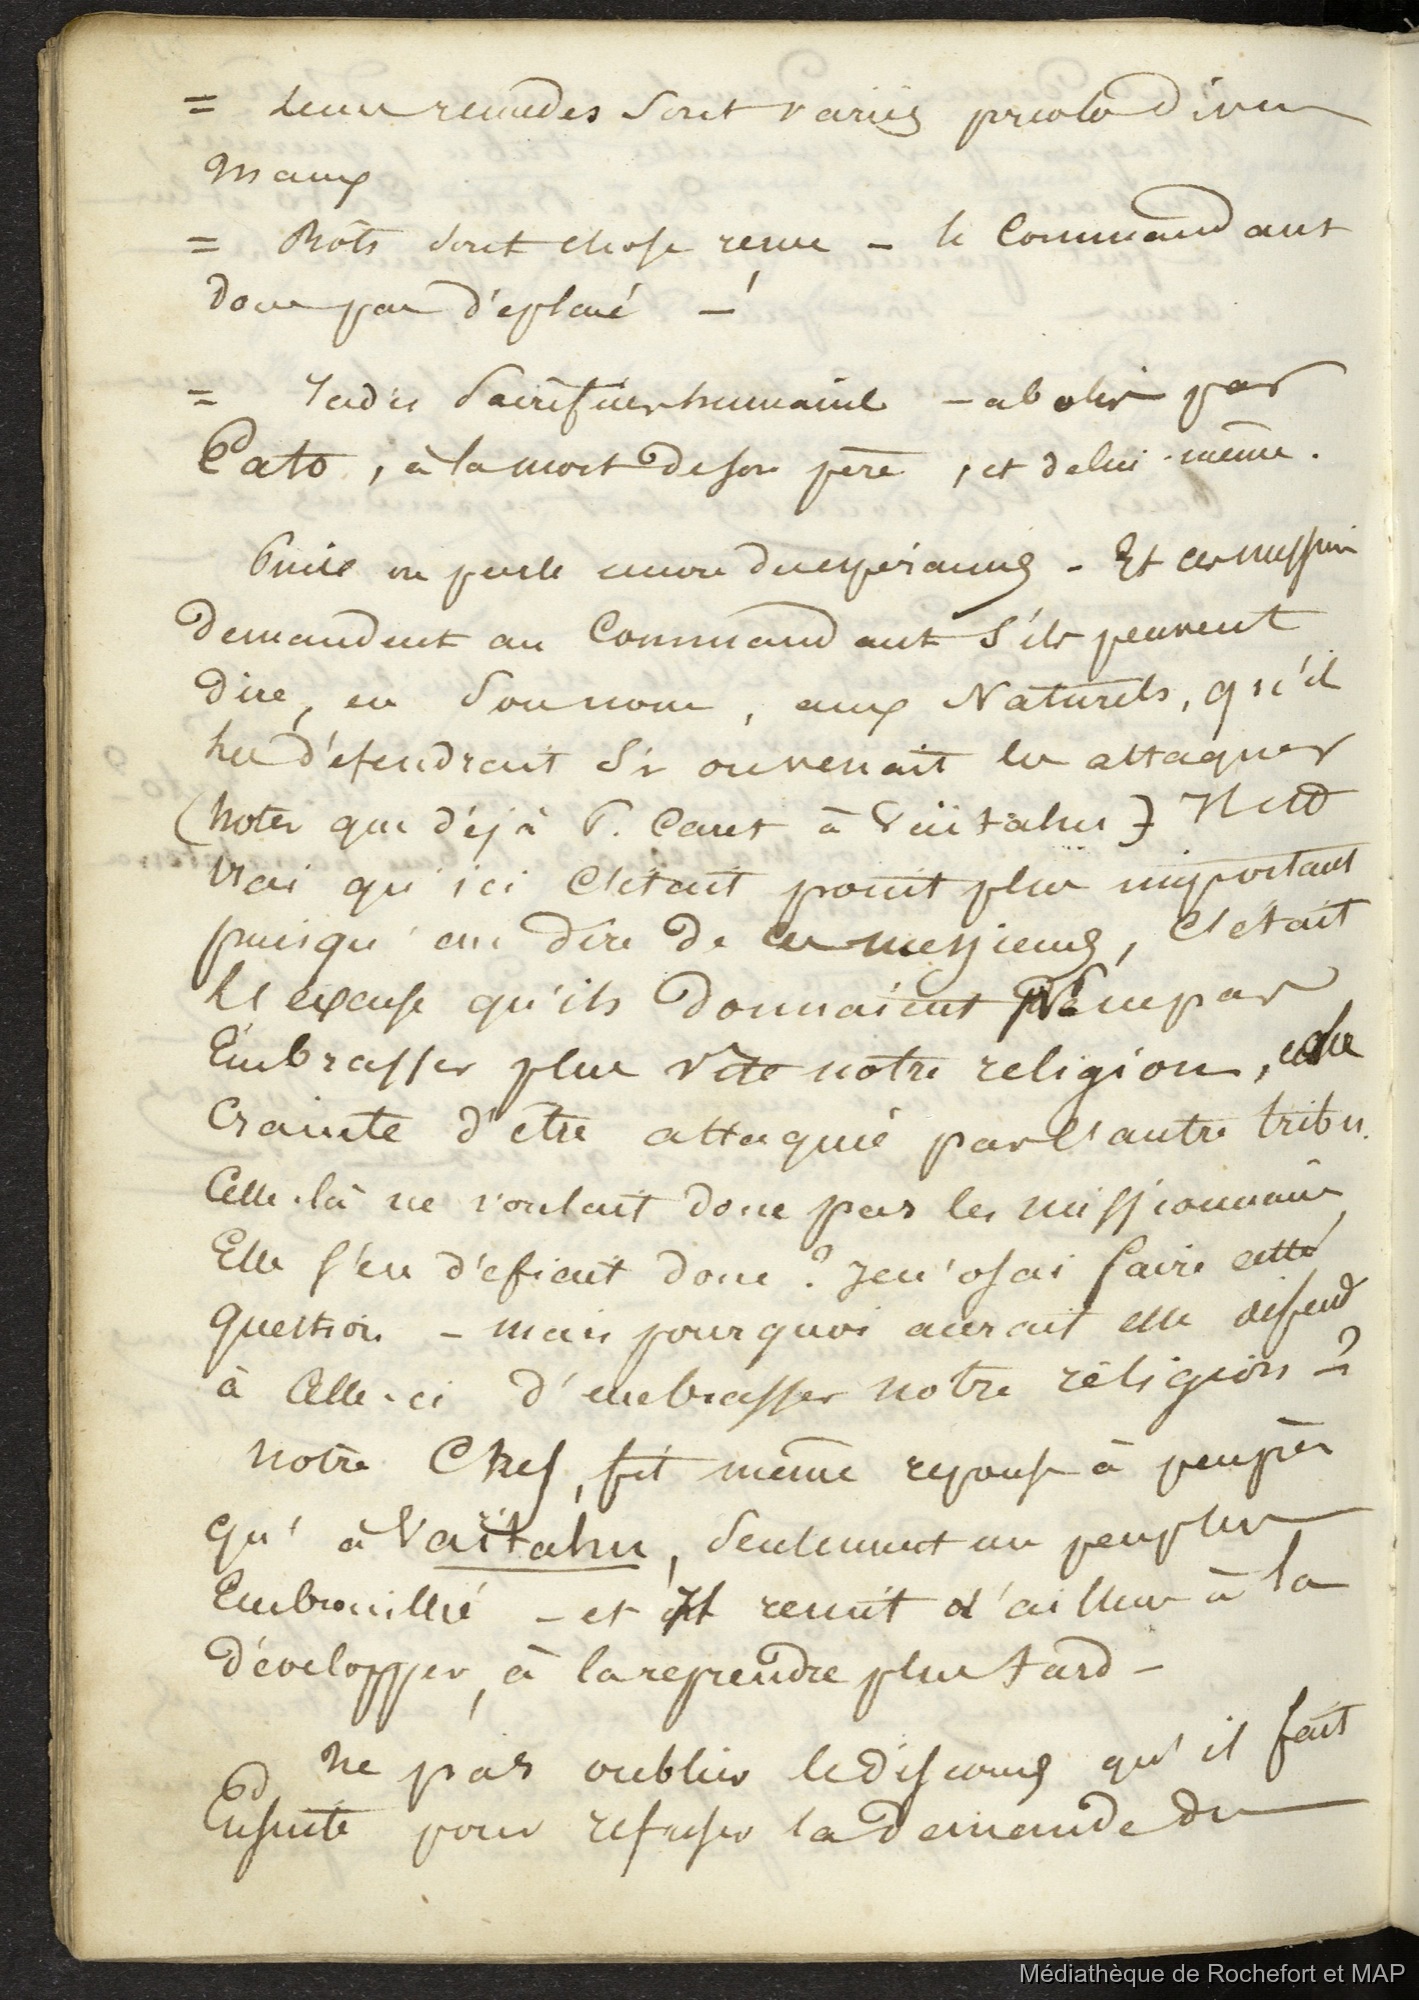 = Leurs remedes sont variés pr les divers
Maux
= Rôts sont chose reçue – le Commandant
donc pas déplacé – !
= Jadis Sacrifices humains – abolis par
Pato, à la mort de son père, et de lui-même.
Puis on parle encore d'espérances – Et ces missres
demandent au Commandant s'ils peuvent
dire, en son nom, aux Naturels, qu'il
les défendrait si on venait les attaquer
(Noter que déjà P. Caret à Vaïtahu) Il est
vrai qu'ici c'était point plus important
puisqu'au dire de ces messieurs, c'était
l'excuse qu'ils donnaient pr ne pas
Embrasser plus vite notre religion, cette
Crainte d'être attaqué par l'autre tribu.
Celle-là ne voulait donc pas les missionnaires
Elle s'en défiait donc ? Je n'osai faire cette
question – mais pourquoi aurait elle défend
à Celle-ci d'embrasser notre réligion – ?
Notre Chef, fit même reponse à peu près
qu'à Vaïtahu, seulement un peu plus
Embrouillé – et Il remit d'ailleurs à la
développer, à la reprendre plus tard –
Ne pas oublier le discours qu'il fait
Ensuite pour refuser la demande de
Médiathèque de Rochefort et MAP